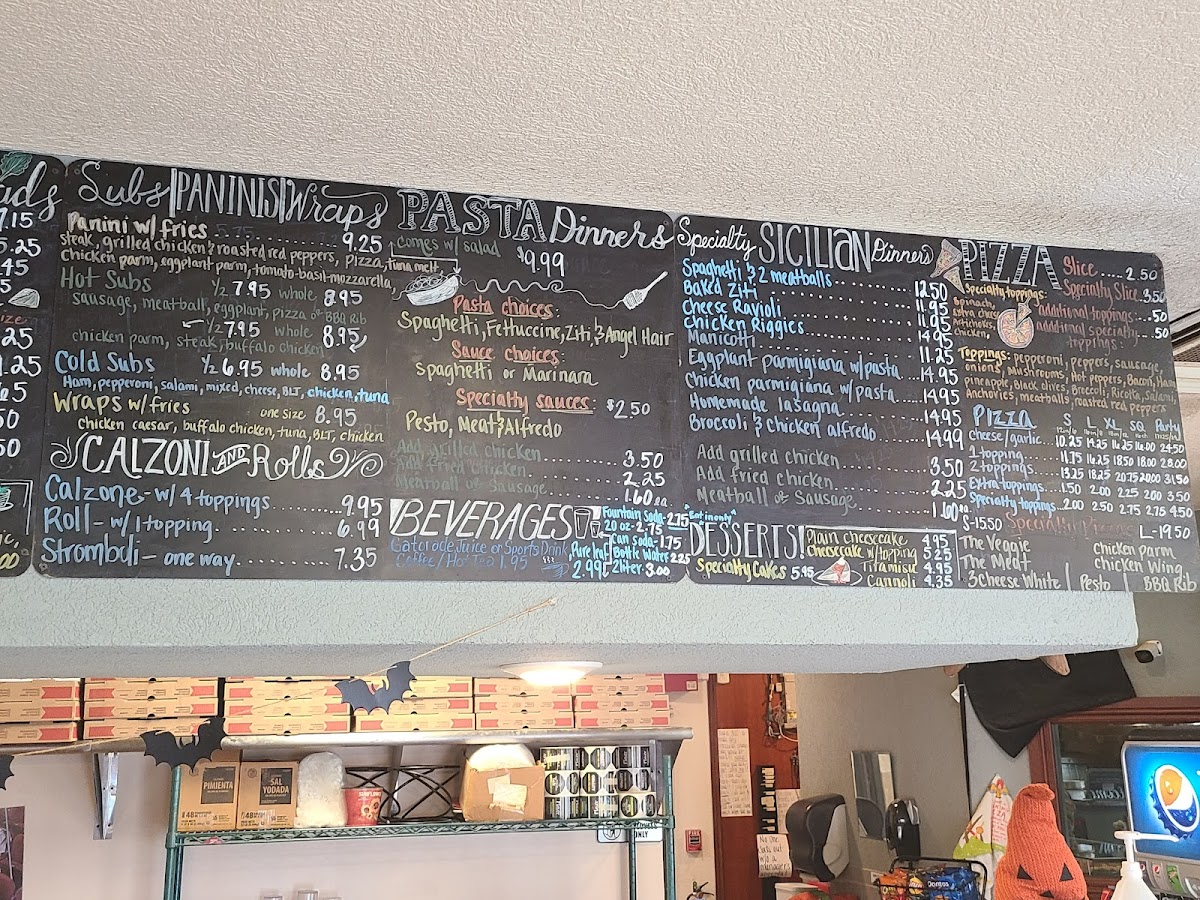 ads
7.15
5.25
.45
5
ize:
.25
1.25
65
50
50
Subs PANINIS Wraps
Panini w/ fries
steak, grilled chicken & roasted red peppers, pizza, tuna melt 9.25
chicken parm, eggplant parm, tomato-basil-mozzarella,
Hot Subs ½ 7.95 whole 8.95
sausage, meatball, eggplant, pizza or BBQ rib
½ 7.95 whole 8.95
chicken parm, steak, buffalo chicken
Cold Subs ½ 6.95 whole 8.95
Ham, pepperoni, salami, mixed, cheese, BLT, chicken, tuna
Wraps w/ fries one size 8.95
chicken caesar, buffalo chicken, tuna, BLT, chicken
CALZONI AND Rolls
Calzone - w/ 4 toppings 9.95
Roll - w/ 1 topping 6.99
Stromboli - one way 7.35
PASTA Dinners
comes w/ salad $9.99
Pasta choices:
Spaghetti, Fettuccine, Ziti, & Angel Hair
Sauce choices:
Spaghetti or Marinara
Specialty sauces: $2.50
Pesto, Meat & Alfredo
Add grilled chicken 3.50
Add fried chicken 2.25
Meatball or Sausage 1.60 ea.
BEVERAGES
Gatorade Juice or Sports Drink
Coffee/Hot Tea 1.95
Pure leaf
2.99
Fountain Soda - 2.75
20 oz - 2.75
Can Soda - 1.75
Bottle Water 2.25
2 liter 3.00
Specialty SICILIAN Dinners
Spaghetti & 2 meatballs 12.50
Baked Ziti 11.95
Cheese Ravioli 11.95
Chicken Riggies 14.95
Manicotti 11.25
Eggplant parmigiana w/ pasta 14.95
Chicken parmigiana w/ pasta 14.95
Homemade lasagna 14.95
Broccoli & chicken alfredo 14.99
Add grilled chicken 3.50
Add fried chicken 2.25
Meatball or Sausage 1.60 ea
"Eat in only"
DESSERTS!
Specialty Cakes 5.95
Plain cheesecake 4.95
Cheesecake w/ topping 5.25
Tiramisu 4.95
Cannoli 4.35
PIZZA
Slice .... 2.50
Specialty Slice. 3.50
additional toppings: .50
additional specialty toppings: .50
Specialty toppings:
Spinach,
extra cheese
Artichokes,
Chicken,
Toppings: pepperoni, peppers, sausage,
onions, Mushrooms, Hot peppers, Bacon, Ham
pineapple, Black olives, Broccoli, Ricotta, Salami,
Anchovies, meatballs, roasted red peppers
PIZZA S L XL SQ Party
cheese/garlic 10.25 14.25 16.25 16.00 24.50
1 topping 11.75 16.25 18.50 18.00 28.00
2 toppings 13.25 18.25 20.75 20.00 31.50
Extra toppings 1.50 2.00 2.25 2.00 3.50
Specialty toppings 2.00 2.50 2.75 2.75 4.50
S-15.50 L-19.50
The Veggie
The Meat
3 cheese White | Pesto | BBQ Rib
Chicken parm
Chicken Wing
PIMIENTA
SAL YODADA
Doritos